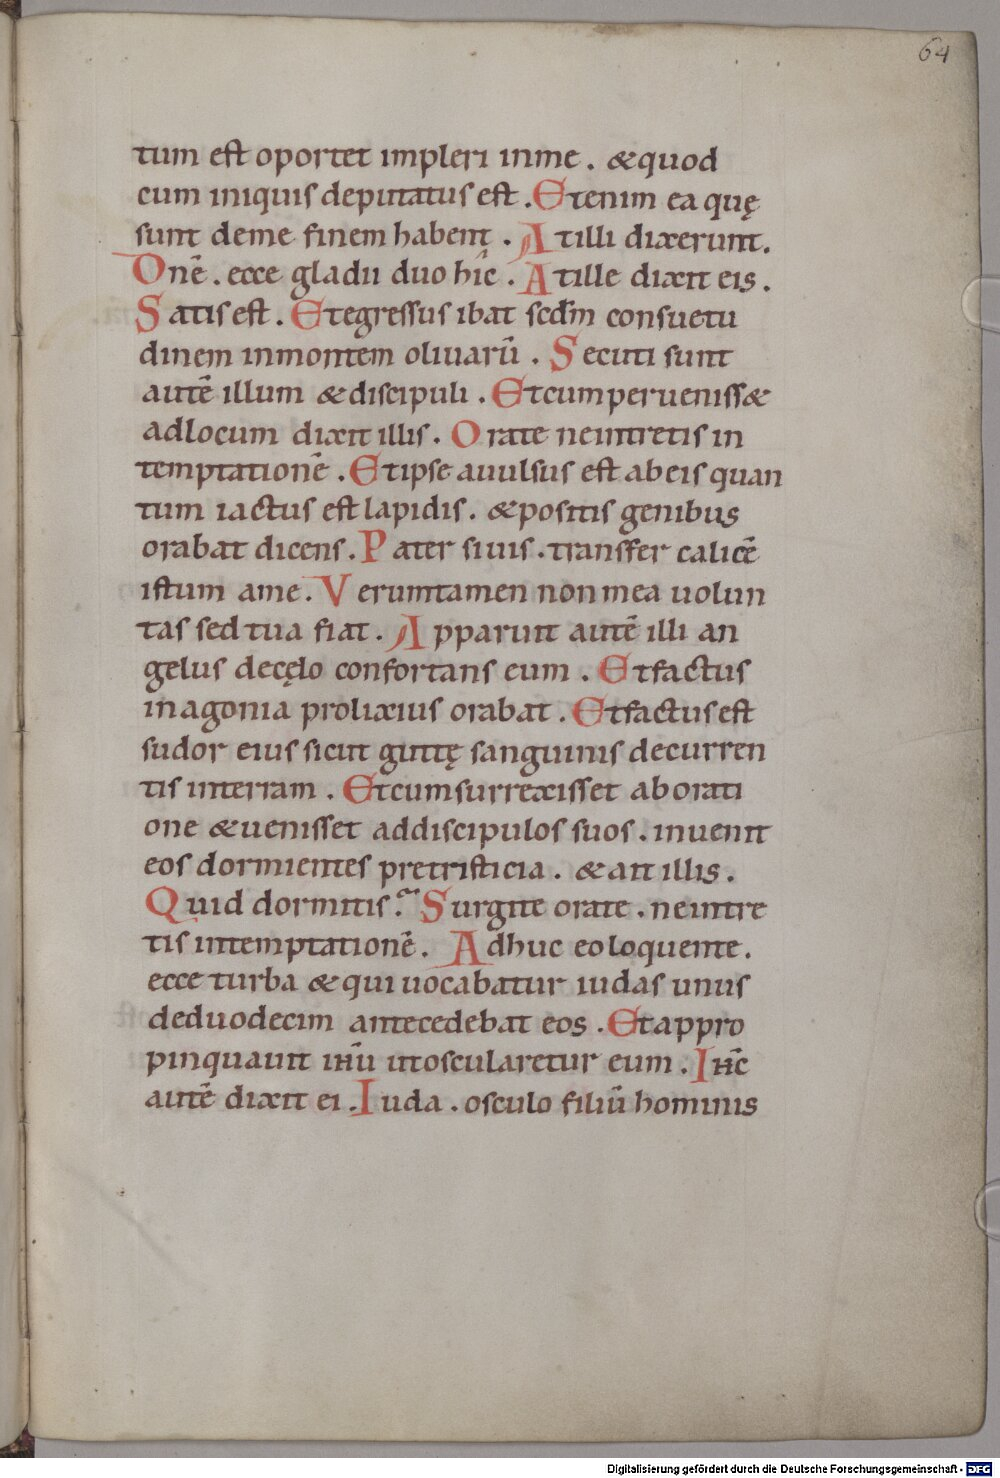 64
tum est oportet impleri inme . &quod
cum iniquis deputatus est . Etenim ea quę
sunt deme finem habent . Atilli dixerunt .
Dnē . ecce gladii duo hic . Atille dixit eis .
Satis est . Etegressus ibat scdm consuetu
dinem inmontem oliuarū . Secuti sunt
autē illum &discipuli . Etcumperueniss&
adlocum dixit illis . Orate neintretis in
temptationē . Etipse auulsus est abeis quan
tum iactus est lapidis . &positis genibus
orabat dicens . Pater siuis . transfer calicē
istum ame . Veruntamen non mea uolun
tas sed tua fiat . Apparuit autē illi an
gelus decęlo confortans eum . Etfactus
inagonia prolixius orabat . Etfactus est
sudor eius sicut guttę sanguinis decurren
tis interram . Etcumsurrexisset aborati
one &uenisset addiscipulos suos . inuenit
eos dormientes pretristicia . &ait illis .
Quid dormitis ? Surgite orate . neintre
tis intemptationē . Adhuc eo loquente .
ecce turba &qui uocabatur iudas unus
deduodecim antecedebat eos . Etappro
pinquauit ihū utoscularetur eum . Ihc̄
autē dixit ei . Iuda . osculo filiū hominis
Digitalisierung gefördert durch die Deutsche Forschungsgemeinschaft - DFG